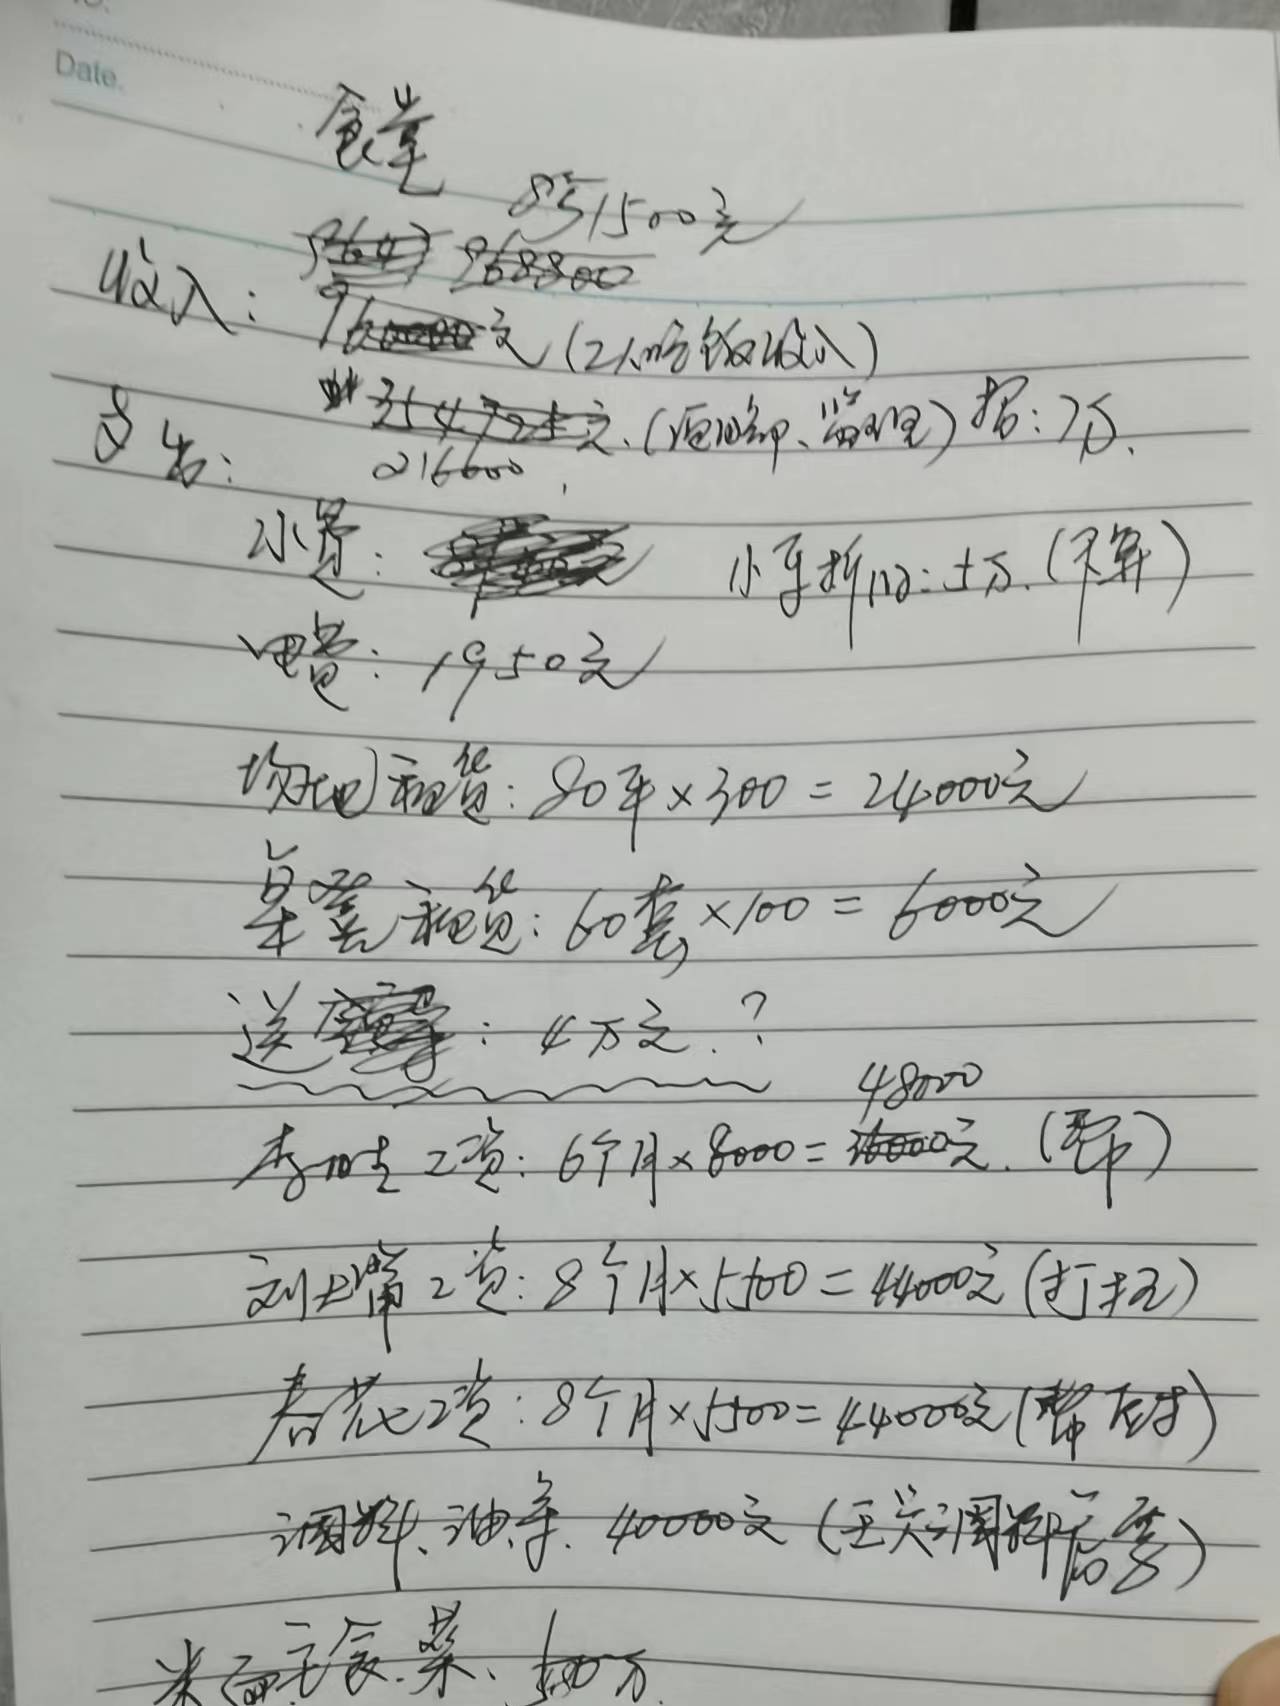 Date.
食堂
851500元
968800
收入: 960000元(工人吃饭收入)
354725元.(项目部、监理)招:7万.
支出: 216600
水费:
小车折旧:十万.(不算)
电费: 1950元
场地租赁: 80平×300=24000元
桌凳租赁: 60套×100=6000元
送 : 4万元.?
48000
工资: 6个月×8000= 元.
刘大嘴工资: 8个月×5500=44000元(打扫)
春花工资: 8个月×5500=44000元(帮 )
调料、油等. 40000元(王 调料 )
米面主食.菜、 万